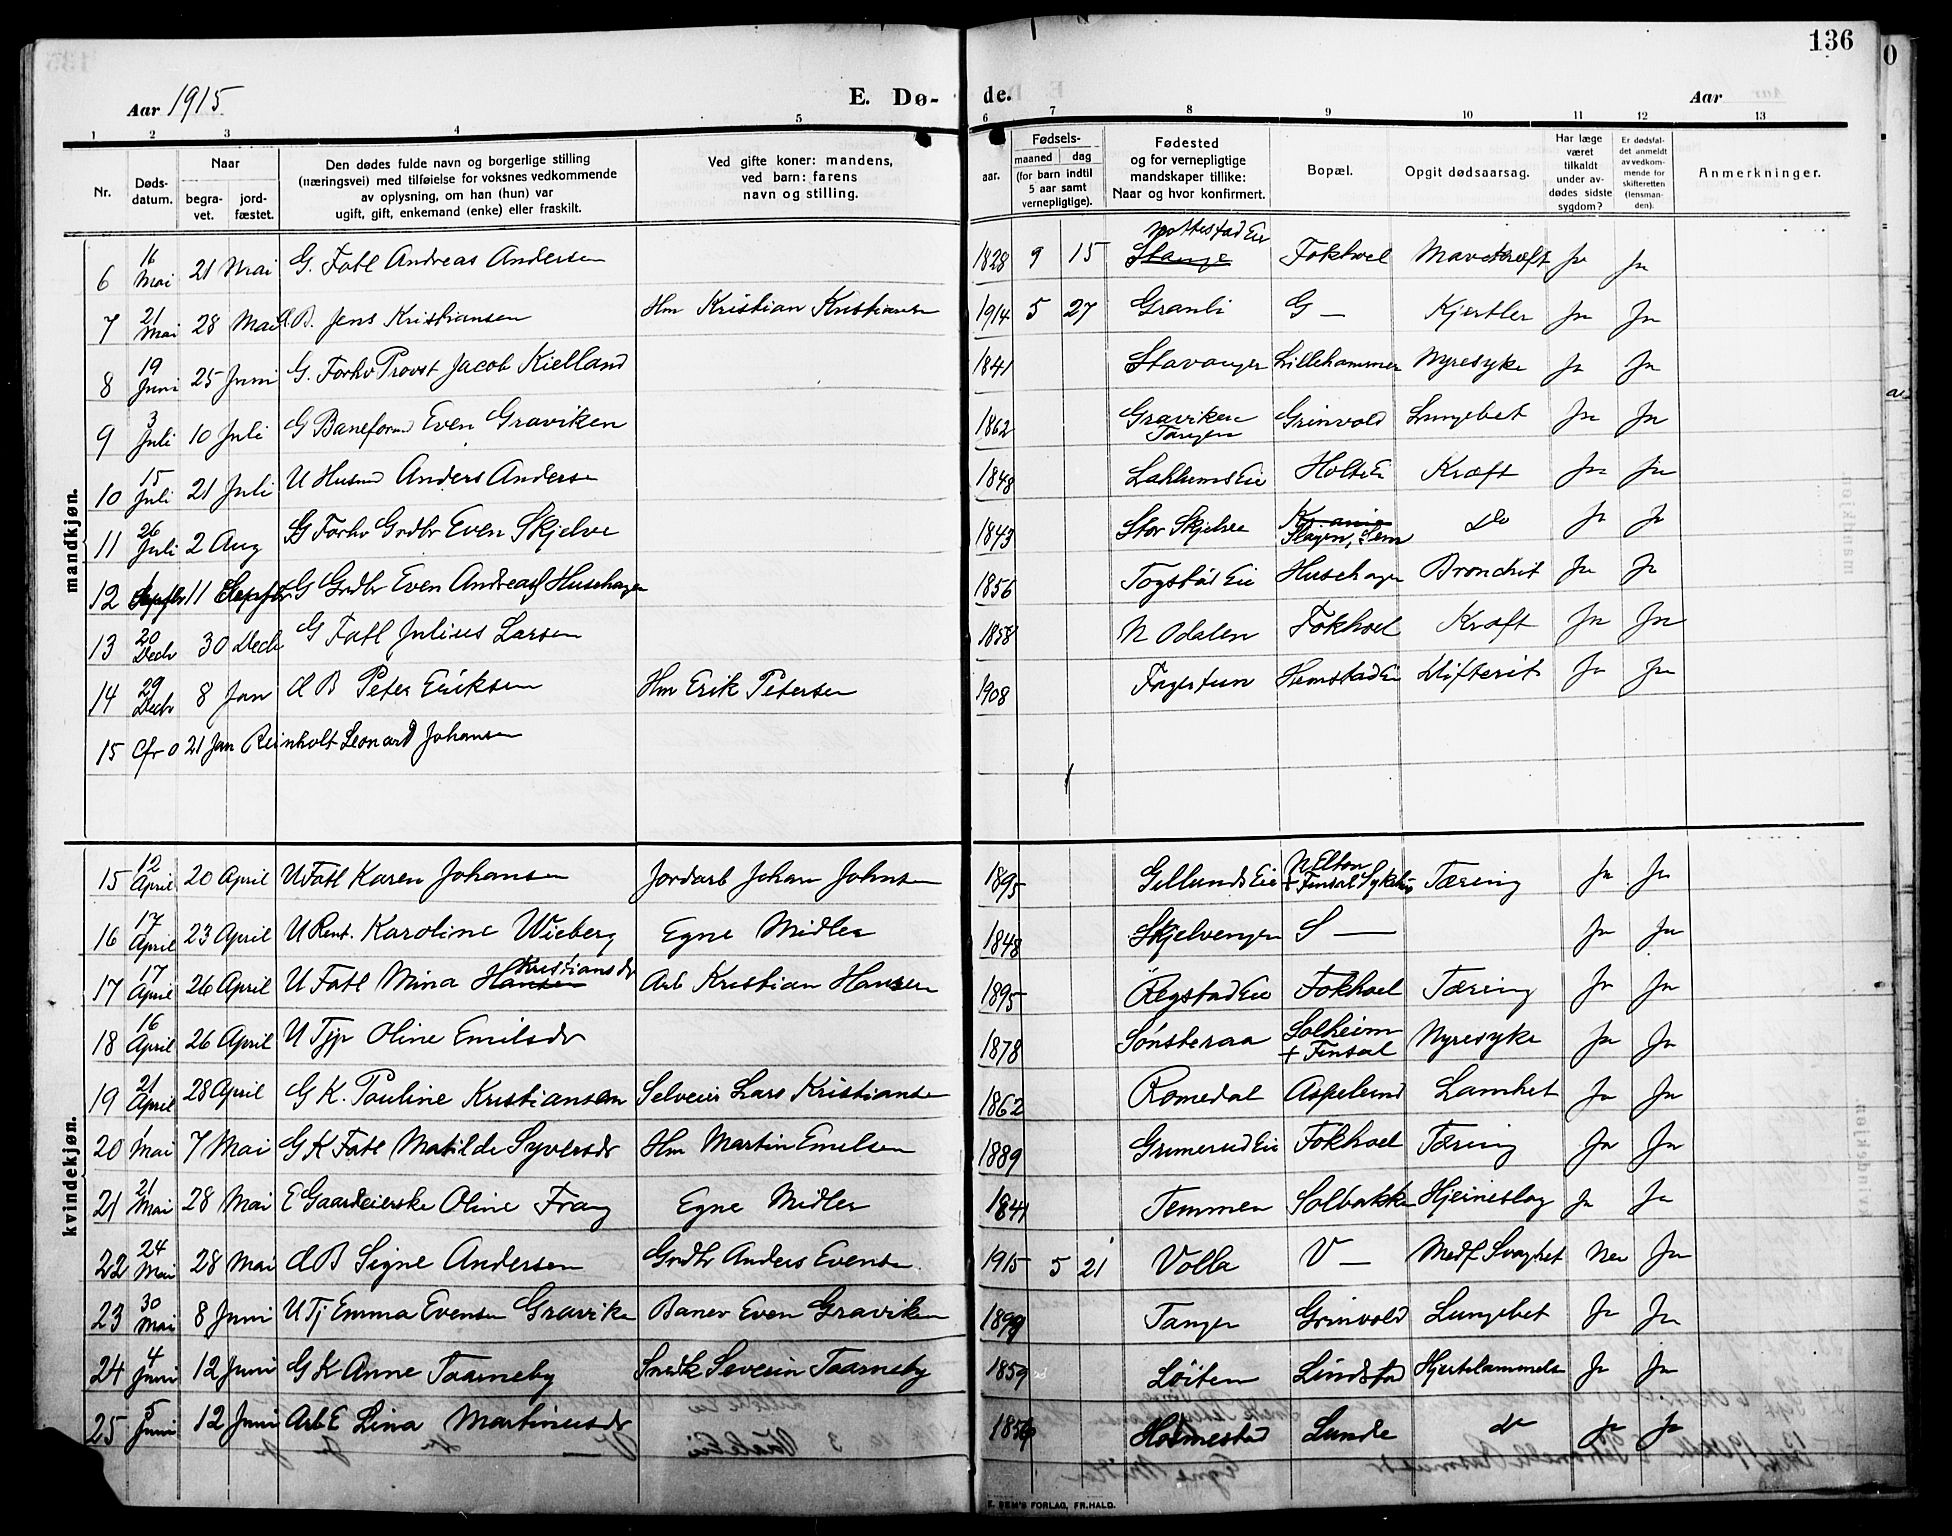 136
Aar 1915
E. Dø-
de.
Aar
1 2 3 4 5 6 7 8 9 10 11 12 13
Nr.
Døds-
datum.
Naar
begra-
vet.
jord-
fæstet.
Den dødes fulde navn og borgerlige stilling
(næringsvei) med tilføielse for voksnes vedkommende
av oplysning, om han (hun) var
ugift, gift, enkemand (enke) eller fraskilt.
Ved gifte koner: mandens,
ved barn: farens
navn og stilling.
Fødsels-
aar.
maaned
dag
(for barn indtil
5 aar samt
vernepligtige).
Fødested
og for vernepligtige
mandskaper tillike:
Naar og hvor konfirmert.
Bopæl.
Opgit dødsaarsag.
Har læge
været
tilkaldt
under av-
dødes sidste
sygdom?
Er dødsfal-
det anmeldt
av vedkom-
mende for
skifteretten
(lensman-
den).
Anmerkninger.
mandkjøn.
6 16 Mai 21 Mai G. Fatl Andreas Andersen 1828 9 15 Stange Nottestad Eie Fokhoel Mavekræft Ja Ja
7 21 Mai 28 Mai d.B. Jens Kristiansen Hm Kristian Kristiansen 1914 5 27 Granli G — Kjertler Ja Ja
8 19 Juni 25 Juni G. Forhv Provst Jacob Kielland 1841 Stavanger Lillehammer Nyresyke Ja Ja
9 3 Juli 10 Juli G Baneform Even Graviken 1862 Graviken Tangen Grinvold Lungebet Ja Ja
10 15 Juli 21 Juli U Husmd Anders Andersen 1848 Laklums Eie Holts Ei Kræft Ja Ja
11 26 Juli 2 Aug G Forhv Grdbr Even Skjelve 1843 Stor Skjelve Kr.ania Slagen, Sem Do Ja Ja
12 1 Septbr 11 Septbr G Grdbr Even Andreas Husehagen 1856 Togstad Eie Husehagen Bronchit Ja Ja
13 20 Decbr 30 Decbr G Fatl Julius Larsen 1858 N Odalen Fokhoel Kræft Ja Ja
14 29 Decbr 8 Jan d B Peter Eriksen Hm Erik Petersen 1908 Fagertun Hemstad Ei Difterit Ja Ja
15 Cfr 0 21 Jan Reinholt Leonard Johansen
kvindekjøn.
15 12 April 20 April U Fatl Karen Johansen Jordarb Johan Johnsen 1895 Gillunds Eie N Elton + Finsal Sykehus Tæring Ja Ja
16 17 April 23 April U Rent. Karoline Wieberg Egne Midler 1848 Skjelvengen S — Ja Ja
17 17 April 26 April U Fatl Mina Hansen Kristiansdr Arb Kristian Hansen 1895 Øegstad Eie Fokhoel Tæring Ja Ja
18 16 April 26 April U Tjp Oline Emilsdr 1878 Sønsteraa Solheim + Finsal Nyresyke Ja Ja
19 21 April 28 April G K. Pauline Kristiansen Selveier Lars Kristiansen 1862 Romedal Aspelund Lamhet Ja Ja
20 1 Mai 7 Mai G K Fatl Matilde Syversdr Hm Martin Emilsen 1889 Grimerud Eie Fokhoel Tæring Ja Ja
21 21 Mai 28 Mai E Gaardeierske Oline Frang Egne Midler 1841 Temmen Solbakken Hjerneslag Ja Ja
22 24 Mai 28 Mai d B Signe Andersen Grdbr Anders Evensen 1915 5 21 Volla V — Medf Svaghet Nei Ja
23 30 Mai 8 Juni U Tj Emma Evensen Graviken Banev Even Graviken 1899 Tangen Grinvold Lungebet Ja Ja
24 4 Juni 12 Juni G K Anne Taarneby Snedk Severin Taarneby 1859 Løiten Lindstad Hjertelammelse Ja Ja
25 5 Juni 12 Juni Arb E Lina Martinusdr 1856 Holmestad Lunde do Ja Ja
E. SEM'S FORLAG, FR.HALD.